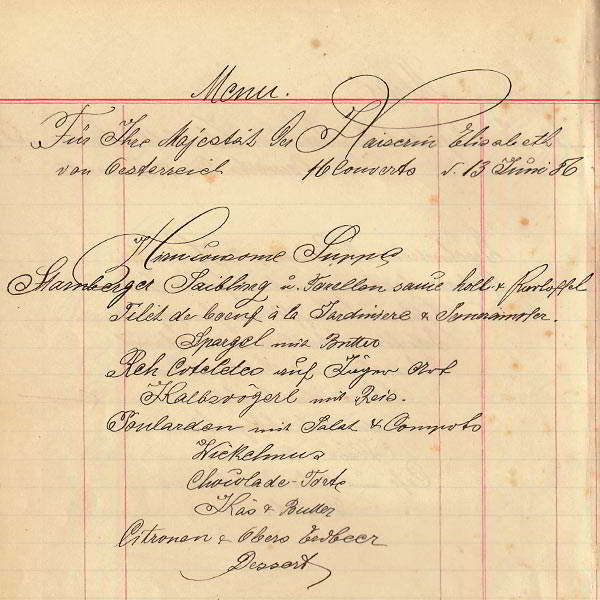 Menu.
Für Ihre Majestät der Kaiserin Elisabeth
von Oesterreich 16 Couverts d. 13 Juni 86
Suppe
Starnberger Saibling u. Forellen sauce holl. & Kartoffel
Filet de boeuf à la Jardiniere &
Spargel mit Butter
Reh Coteletes auf Jäger Art
Kalbsvögerl mit Reis.
Poularden mit Salat & Compots
Wickelmus
Chocolade-Torte
Käs & Butter
Citronen & Obers Erdbeer
Dessert